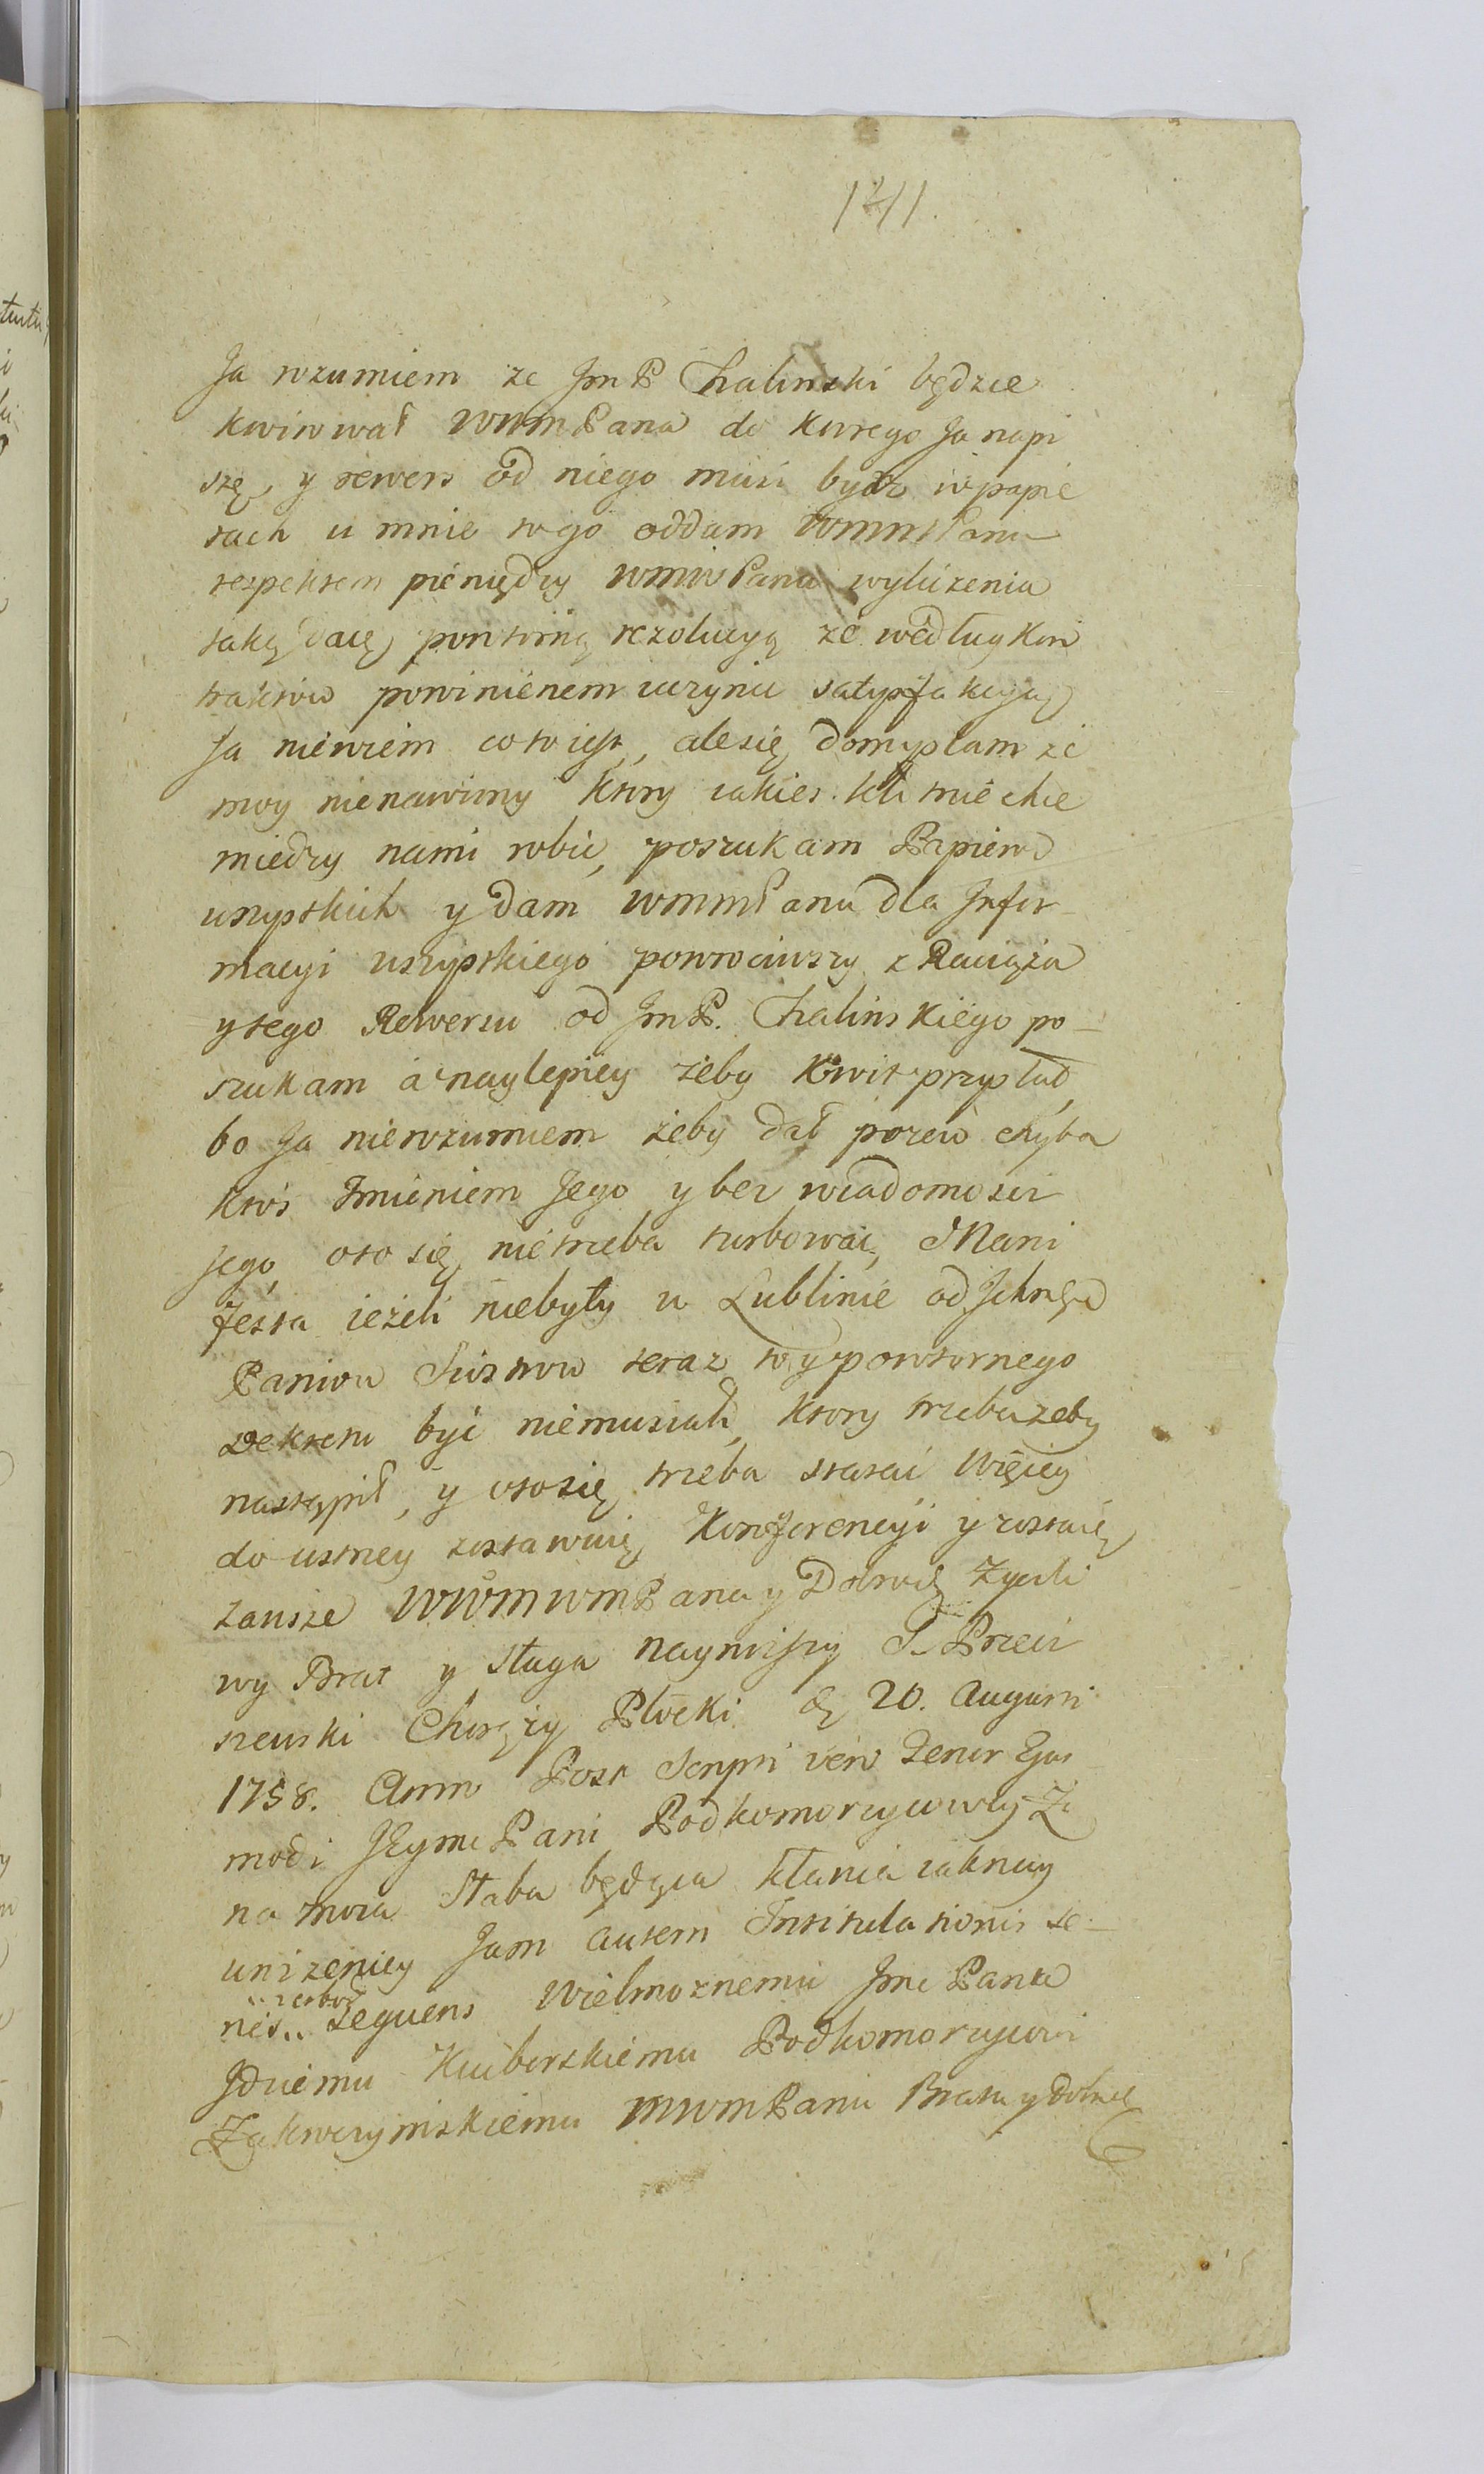 1211.
Ja rozumiem że Jm P Chalinski będzie
kwitował WMMPana do ktorego Ja napi
szę, y rewers od niego musi bydz w papie
rach u mnie tego oddam WMMPanu
respektem pieniędzy WMMPana wyliczenia
taką daię powtorną rezolucyą że według Kon
traktow powinienem uczynić satysfakcyą
Ja niewiem co to iest, ale się domyslam że
moy nienawisny ktory iakies kłutnie chce
miedzy nami robic, poszukam Papierow
wszystkich y dam WMMPanu dla Infor
macyi wszystkiego powrociwszy z Raciąża
y tego Rewersu od Jm P. Chalinskiego po-
szukam a naylepiey żeby Kwit przysłał,
bo Ja nierozumiem żeby dał pozew chyba
ktos Imieniem Jego y bez wiadomosci
Jego, oto się nietrzeba turbować, Mani
festa ieżeli niebyły w Lublinie od
Paniow Siostrow teraz to y powtornego
Dekretu być niemusiało, ktory trzeba żeby
nastąpił, y oto się trzeba starać Więcey
do ustney zostawuię Konferencyi y zostaię
zawsze WWMWMPana y Dobrodz Zyczli
wy Brat y sługa nayniższy S. Przeci
szewski Chorąży Płocki D 20. Augusti
1758. Anno Post Scripti vero Tenor Ejus
modi JEyme Pani Podkomorzycowey Żo
na moia słaba będąca kłania iaknay
uniżeniey Jam autem Intitulationis te-
nor verbor
nes.. sequens Wielmożnemu Jme Panu
Jdziemu Kuiborskiemu Podkomorzycowi
Zakroczymskiemu MWMPanu Bratu y Dobrod